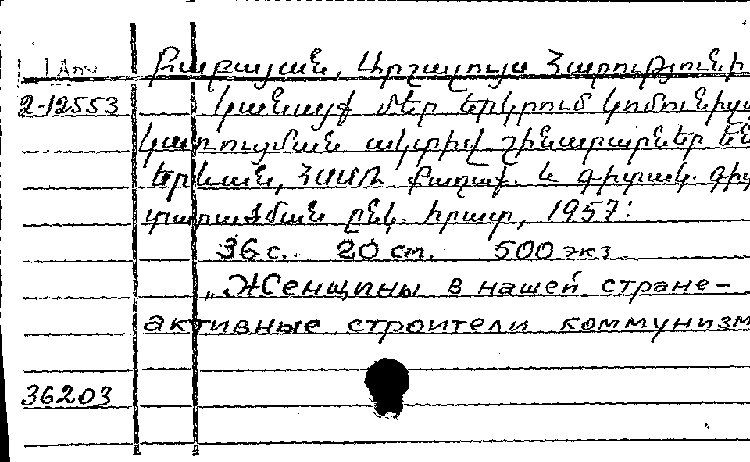 1 Арм
Բաբայան, Արշալույս Հարությունի
2-12553 Կանայք մեր երկրում կոմունիզ
կառուցման ակտիվ շինարարներ են
Երևան, ՀՍՍՌ քաղաք. և գիտակ. գիտ
տարածման ընկ. հրատ, 1957:
36 с. 20 см. 500 экз.
„Женщины в нашей стране-
активные строители коммунизм
36203